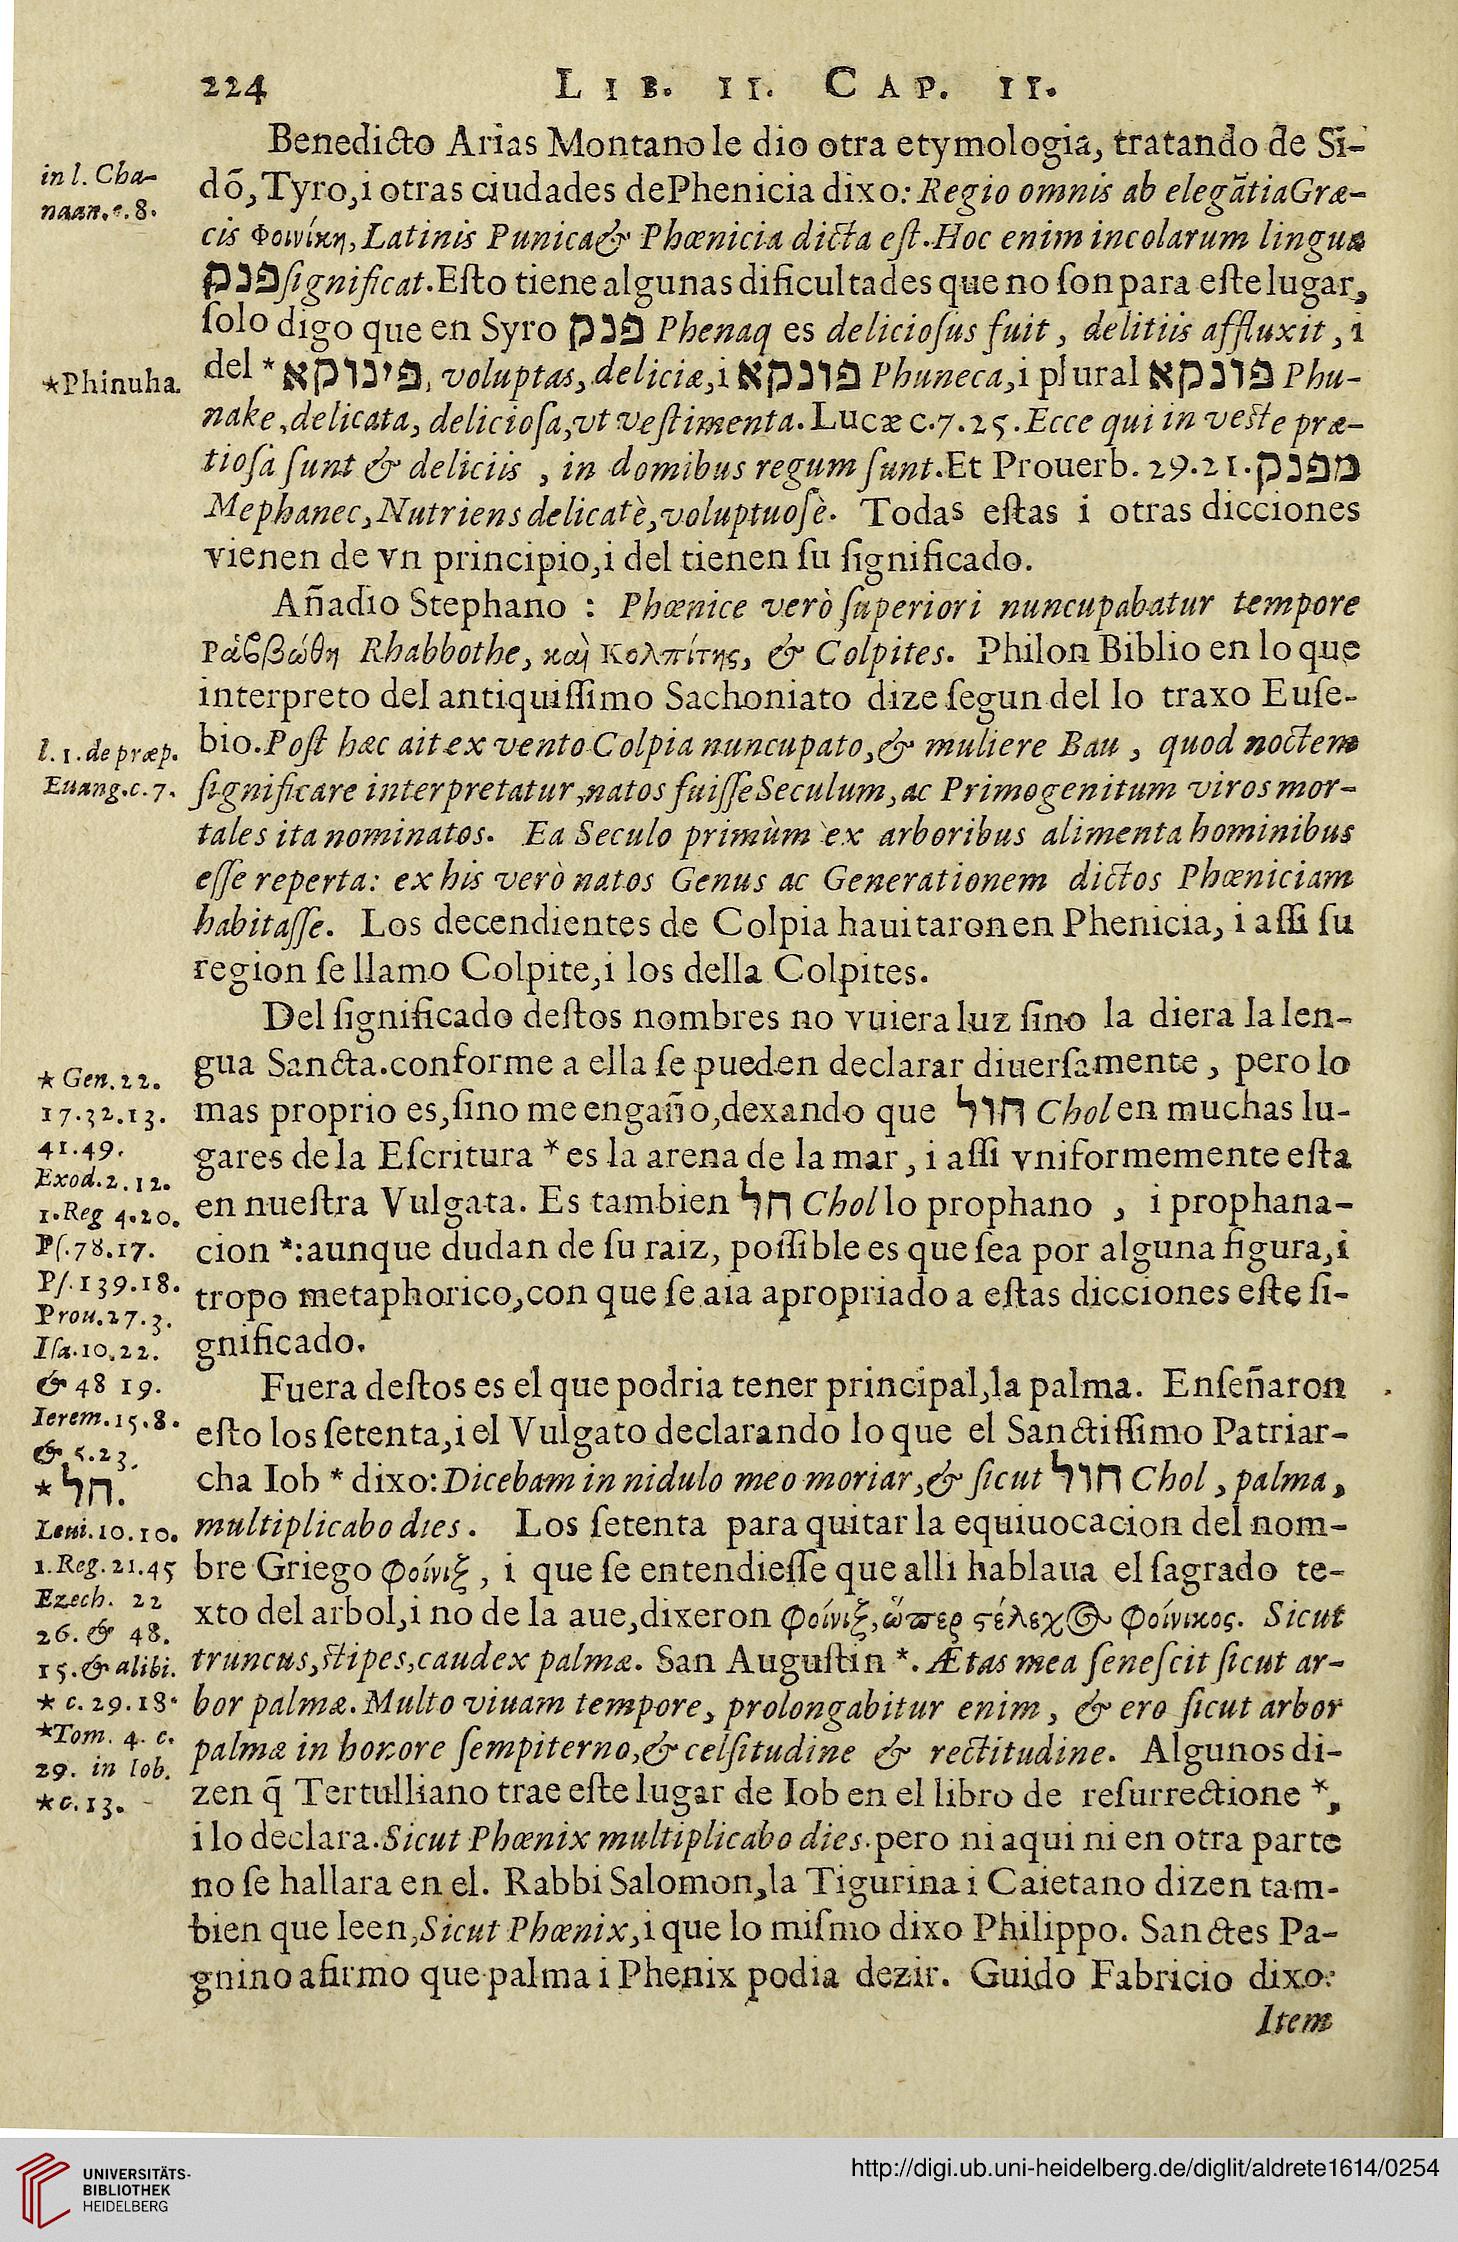 224 LIB. II. CAP. II.
Benedicto Arias Montano le dio otra etymologia, tratando de Si-
dõ, Tyro, i otras ciudades de Phenicia dixo: Regio omnis ab elegãtia Græ-
cis Φοινίκη, Latinis Punica & Phœnicia dicta eſt. Hoc enim incolarum lingua
פנק ſignificat. Eſto tiene algunas dificultades que no ſon para eſte lugar,
ſolo digo que en Syro פנק Phenaq es delicioſus fuit, delitiis affluxit, i
del * פינוקא, voluptas, deliciæ, i פונקא Phuneca, i plural פונקא Phu-
nake, delicata, delicioſa, vt veſtimenta. Lucæ c.7.25. Ecce qui in veſte præ-
tioſa ſunt & deliciis, in domibus regum ſunt. Et Prouerb. 29.21. מפנק
Mephanec, Nutriens delicatè, voluptuoſè. Todas eſtas i otras dicciones
vienen de vn principio, i del tienen ſu ſignificado.
Añadio Stephano : Phœnice verò ſuperiori nuncupabatur tempore
Ῥάϐβώθη Rhabbothe, καὶ Κολπίτης, & Colpites. Philon Biblio en lo que
interpreto del antiquiſſimo Sachoniato dize ſegun del lo traxo Euſe-
bio. Poſt hæc ait ex vento Colpia nuncupato, & muliere Bau, quod noctem
ſignificare interpretatur, natos fuiſſe Seculum, ac Primogenitum viros mor-
tales ita nominatos. Ea Seculo primùm ex arboribus alimenta hominibus
eſſe reperta: ex his verò natos Genus ac Generationem dictos Phœniciam
habitaſſe. Los decendientes de Colpia hauitaron en Phenicia, i aſſi ſu
region ſe llamo Colpite, i los della Colpites.
Del ſignificado deſtos nombres no vuiera luz ſino la diera la len-
gua Sancta. conforme a ella ſe pueden declarar diuerſamente, pero lo
mas proprio es, ſino me engaño, dexando que חול Chol en muchas lu-
gares de la Eſcritura * es la arena de la mar, i aſſi vniformemente eſta
en nueſtra Vulgata. Es tambien חל Chol lo prophano, i prophana-
cion *: aunque dudan de ſu raiz, poſſible es que ſea por alguna figura, i
tropo metaphorico, con que ſe aia apropriado a eſtas dicciones eſte ſi-
gnificado.
Fuera deſtos es el que podria tener principal, la palma. Enſeñaron
eſto los ſetenta, i el Vulgato declarando lo que el Sanctiſſimo Patriar-
cha Iob * dixo: Dicebam in nidulo meo moriar, & ſicut חול Chol, palma,
multiplicabo dies. Los ſetenta para quitar la equiuocacion del nom-
bre Griego φοίνιξ, i que ſe entendieſſe que alli hablaua el ſagrado te-
xto del arbol, i no de la aue, dixeron φοίνιξ, ὥσπερ στέλεχος φοίνικος. Sicut
truncus, ſtipes, caudex palmæ. San Auguſtin *. Ætas mea ſeneſcit ſicut ar-
bor palmæ. Multo viuam tempore, prolongabitur enim, & ero ſicut arbor
palmæ in honore ſempiterno, & celſitudine & rectitudine. Algunos di-
zen q̃ Tertulliano trae eſte lugar de Iob en el libro de reſurrectione *,
i lo declara. Sicut Phœnix multiplicabo dies. pero ni aqui ni en otra parte
no ſe hallara en el. Rabbi Salomon, la Tigurina i Caietano dizen tam-
bien que leen, Sicut Phœnix, i que lo miſmo dixo Philippo. Sanctes Pa-
gnino afirmo que palma i Phenix podia dezir. Guido Fabricio dixo:
Item
in l. Cha-
naan. c. 8.
*Phinuha.
l. 1. de præp.
Euang. c. 7.
* Gen. 22.
17. 32. 13.
41. 49.
Exod. 2. 12.
1. Reg 4. 20.
Pſ. 78. 17.
Pſ. 139. 18.
Prou. 27. 3.
Iſa. 10. 22.
& 48 19.
Ierem. 15. 8.
& 5. 23.
* חל.
Leui. 10. 10.
1. Reg. 21. 45
Ezech. 22
26. & 48.
15. & alibi.
* c. 29. 18.
*Tom. 4. c.
29. in Iob.
* c. 13.
UNIVERSITÄTS-
BIBLIOTHEK
HEIDELBERG
http://digi.ub.uni-heidelberg.de/diglit/aldrete1614/0254